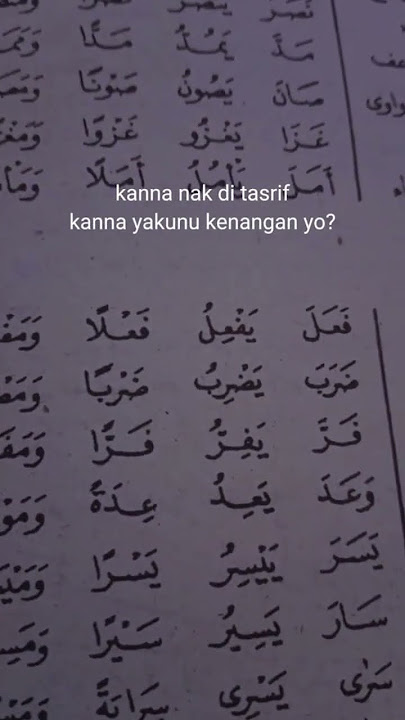 مَدَّ يَمُدُّ مَدًّا
صَانَ يَصُونُ صَوْنًا
واوى
غَزَا يَغْزُو غَزْوًا
أَمَلَ يَأْمُلُ أَمَلًا
kanna nak di tasrif
kanna yakunu kenangan yo?
فَعَلَ يَفْعِلُ فَعْلًا
ضَرَبَ يَضْرِبُ ضَرْبًا
فَرَّ يَفِرُّ فَرًّا
وَعَدَ يَعِدُ عِدَةً
يَسَرَ يَيْسِرُ يَسْرًا
سَارَ يَسِيرُ سَيْرًا
سَرٰى يَسْرِى سِرَايَةً